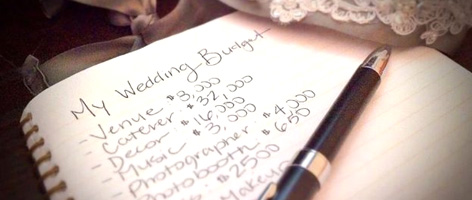 My Wedding Budget
- Venue
- Caterer $32,000
- Decor: $16,000
- Music: $3,000
- Photographer: $4,000
Photobooth: $650
$2500
Makeup